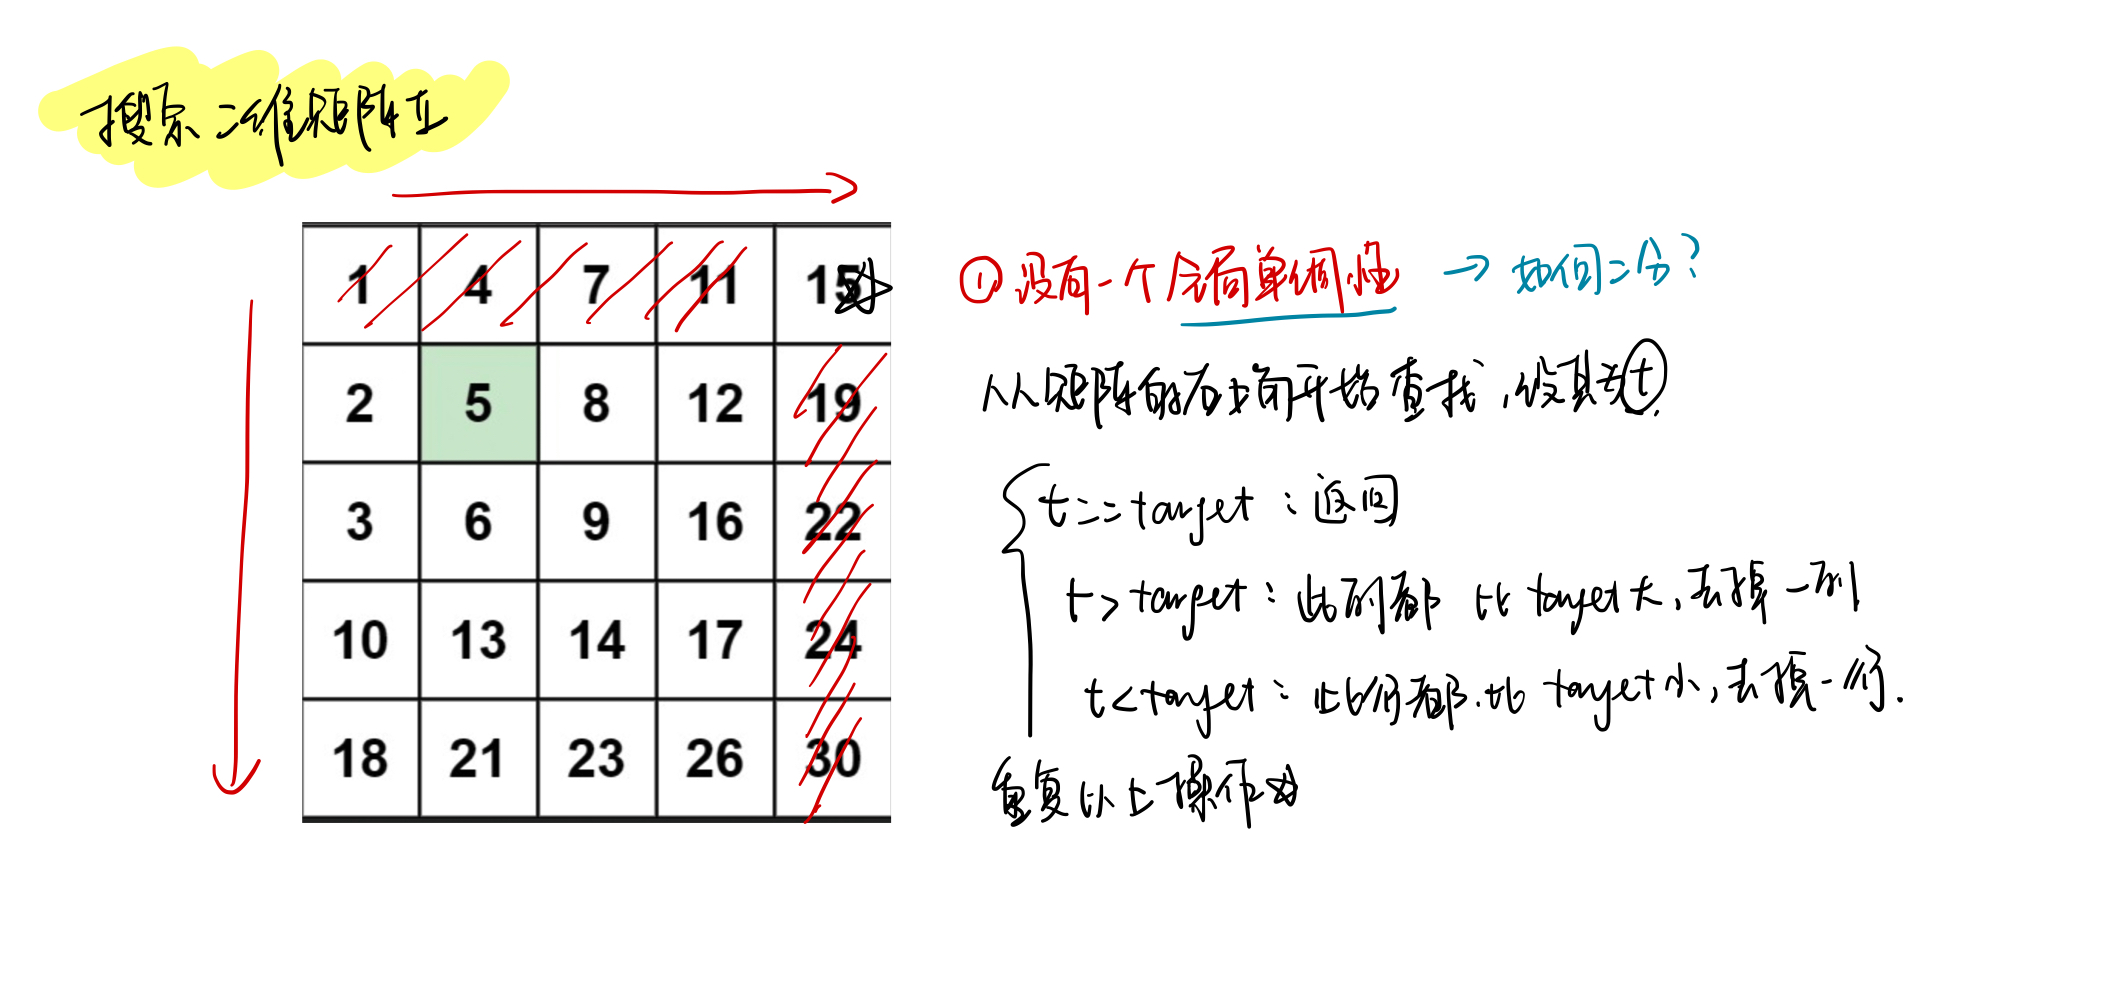 搜索二维矩阵II
1 4 7 11 15
2 5 8 12 19
3 6 9 16 22
10 13 14 17 24
18 21 23 26 30
① 没有一个全局单调性 → 如何二分?
从矩阵的右上角开始查找,设其为t.
t==target:返回
t>target:此列都比target大,去掉一列
t<target:此行都比target小,去掉一行.
重复以上操作